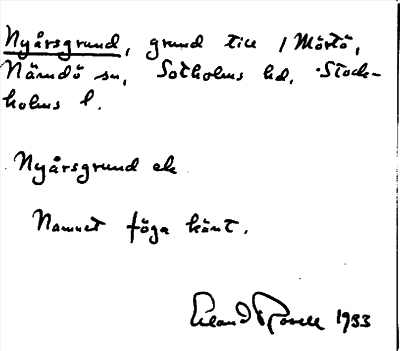 Nyårsgrund, grund till 1 Mörtö,
Nämdö sn, Sotholms hd, Stock-
holms l.
Nyårsgrund ek
Namnet föga känt.
Erland Rosell 1933